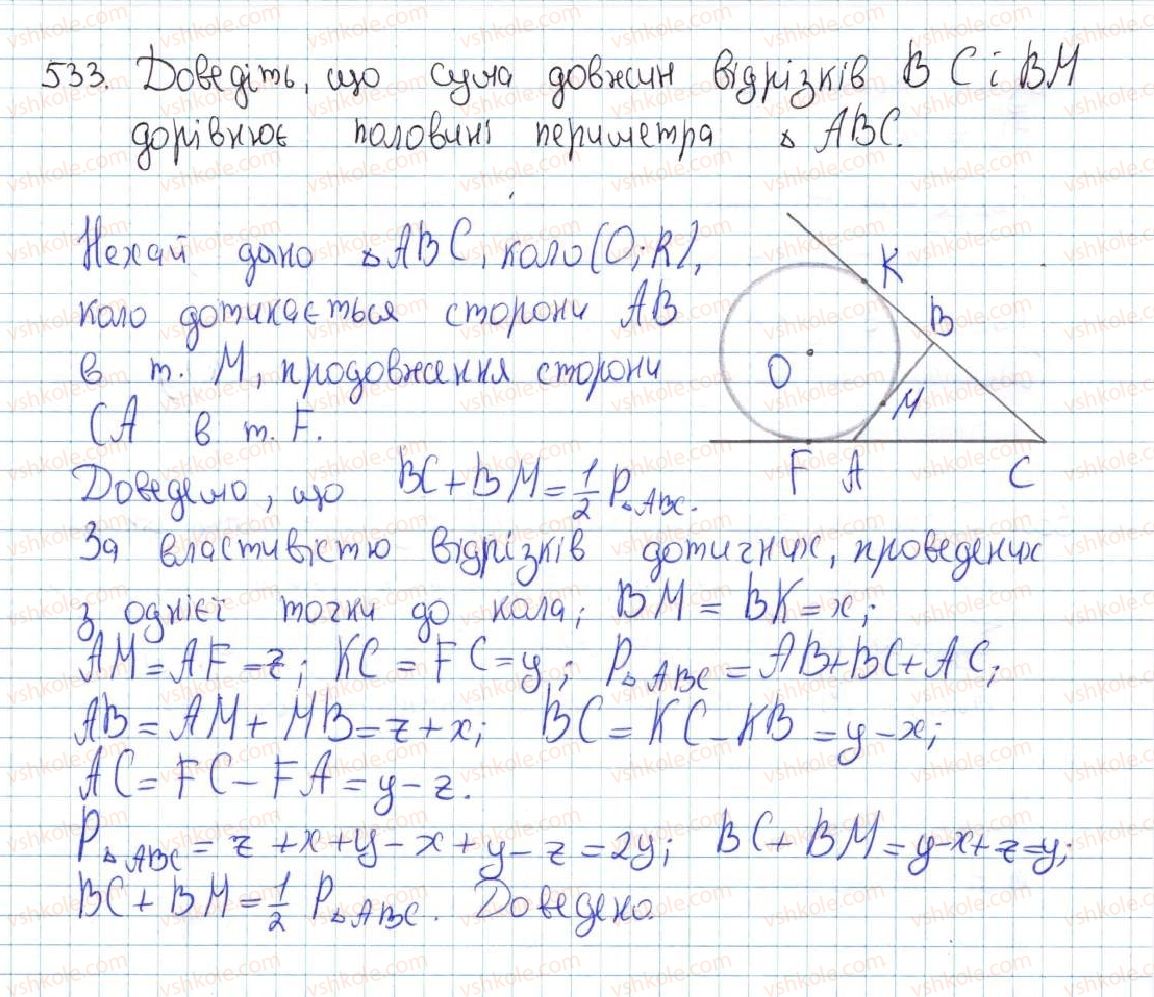 533. Доведіть, що сума довжин відрізків BC і BM
дорівнює половині периметра △ ABC.
Нехай дано △ABC, коло (O; R),
коло дотикається сторони AB
в т. M, продовження сторони
CA в т. F.
K
B
O
M
F A C
Доведемо, що BC + BM = 1/2 P△ABC.
За властивістю відрізків дотичних, проведених
з однієї точки до кола; BM = BK = x;
AM = AF = z; KC = FC = y; P△ABC = AB + BC + AC;
AB = AM + MB = z + x; BC = KC - KB = y - x;
AC = FC - FA = y - z.
P△ABC = z + x + y - x + y - z = 2y; BC + BM = y - x + z = y;
BC + BM = 1/2 P△ABC. Доведено.
vshkole.com